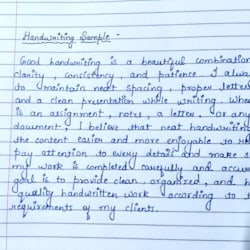 Handwriting Sample -
Good handwriting is a beautiful combination
clarity, consistency, and patience. I alwa
to maintain neat spacing, proper letter
and a clean presentation while writing. Whe
is an assignment, notes, a letter, or any
document, I believe that neat handwriting
the content easier and more enjoyable to
pay attention to every details and make s
my work is completed carefully and accur
goal is to provide clean, organized, and h
quality handwritten work according to t
requirements of my clients.